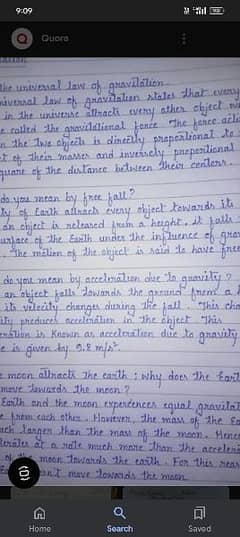 9:09
Quora
the universal law of gravitation
universal law of gravitation states that every
in the universe attracts every other object
called the gravitational force. The force
the two objects is directly proportional to
of their masses and inversely proportional
square of the distance between their centers.
do you mean by free fall?
of Earth attracts every object towards its
an object is released from a height, it falls
surface of the Earth under the influence of
The motion of the object is said to have free
do you mean by acceleration due to gravity?
an object falls towards the ground from a
its velocity changes during the fall. This
produces acceleration in the object. This
is known as acceleration due to gravity
is given by 9.8 m/s².
moon attracts the earth; why does the Earth
move towards the moon?
Earth and the moon experiences equal
from each other. However, the mass of the
larger than the mass of the moon. Hence
at a rate much more than the
of the moon towards the earth. For this
move towards the moon
Home
Search
Saved